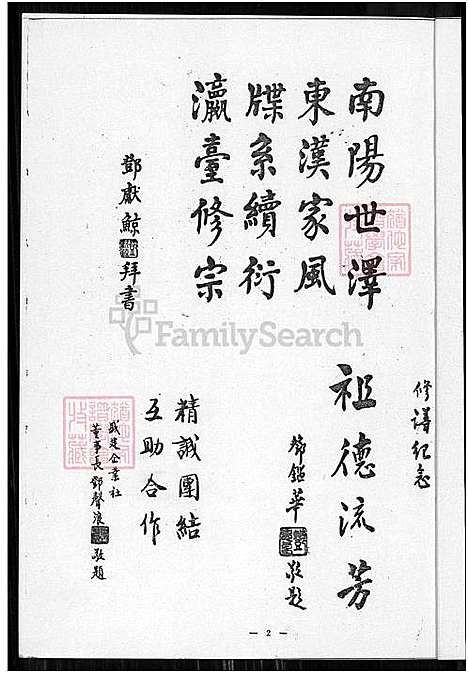 南陽世澤
東漢家風
牒系續衍
瀛臺修宗
鄧獻鯨拜書
修譜紀念
祖德流芳
鄧鎰華敬題
精誠團結
互助合作
盛建企業社
董事長鄧聲浪敬題
FamilySearch
— 2 —